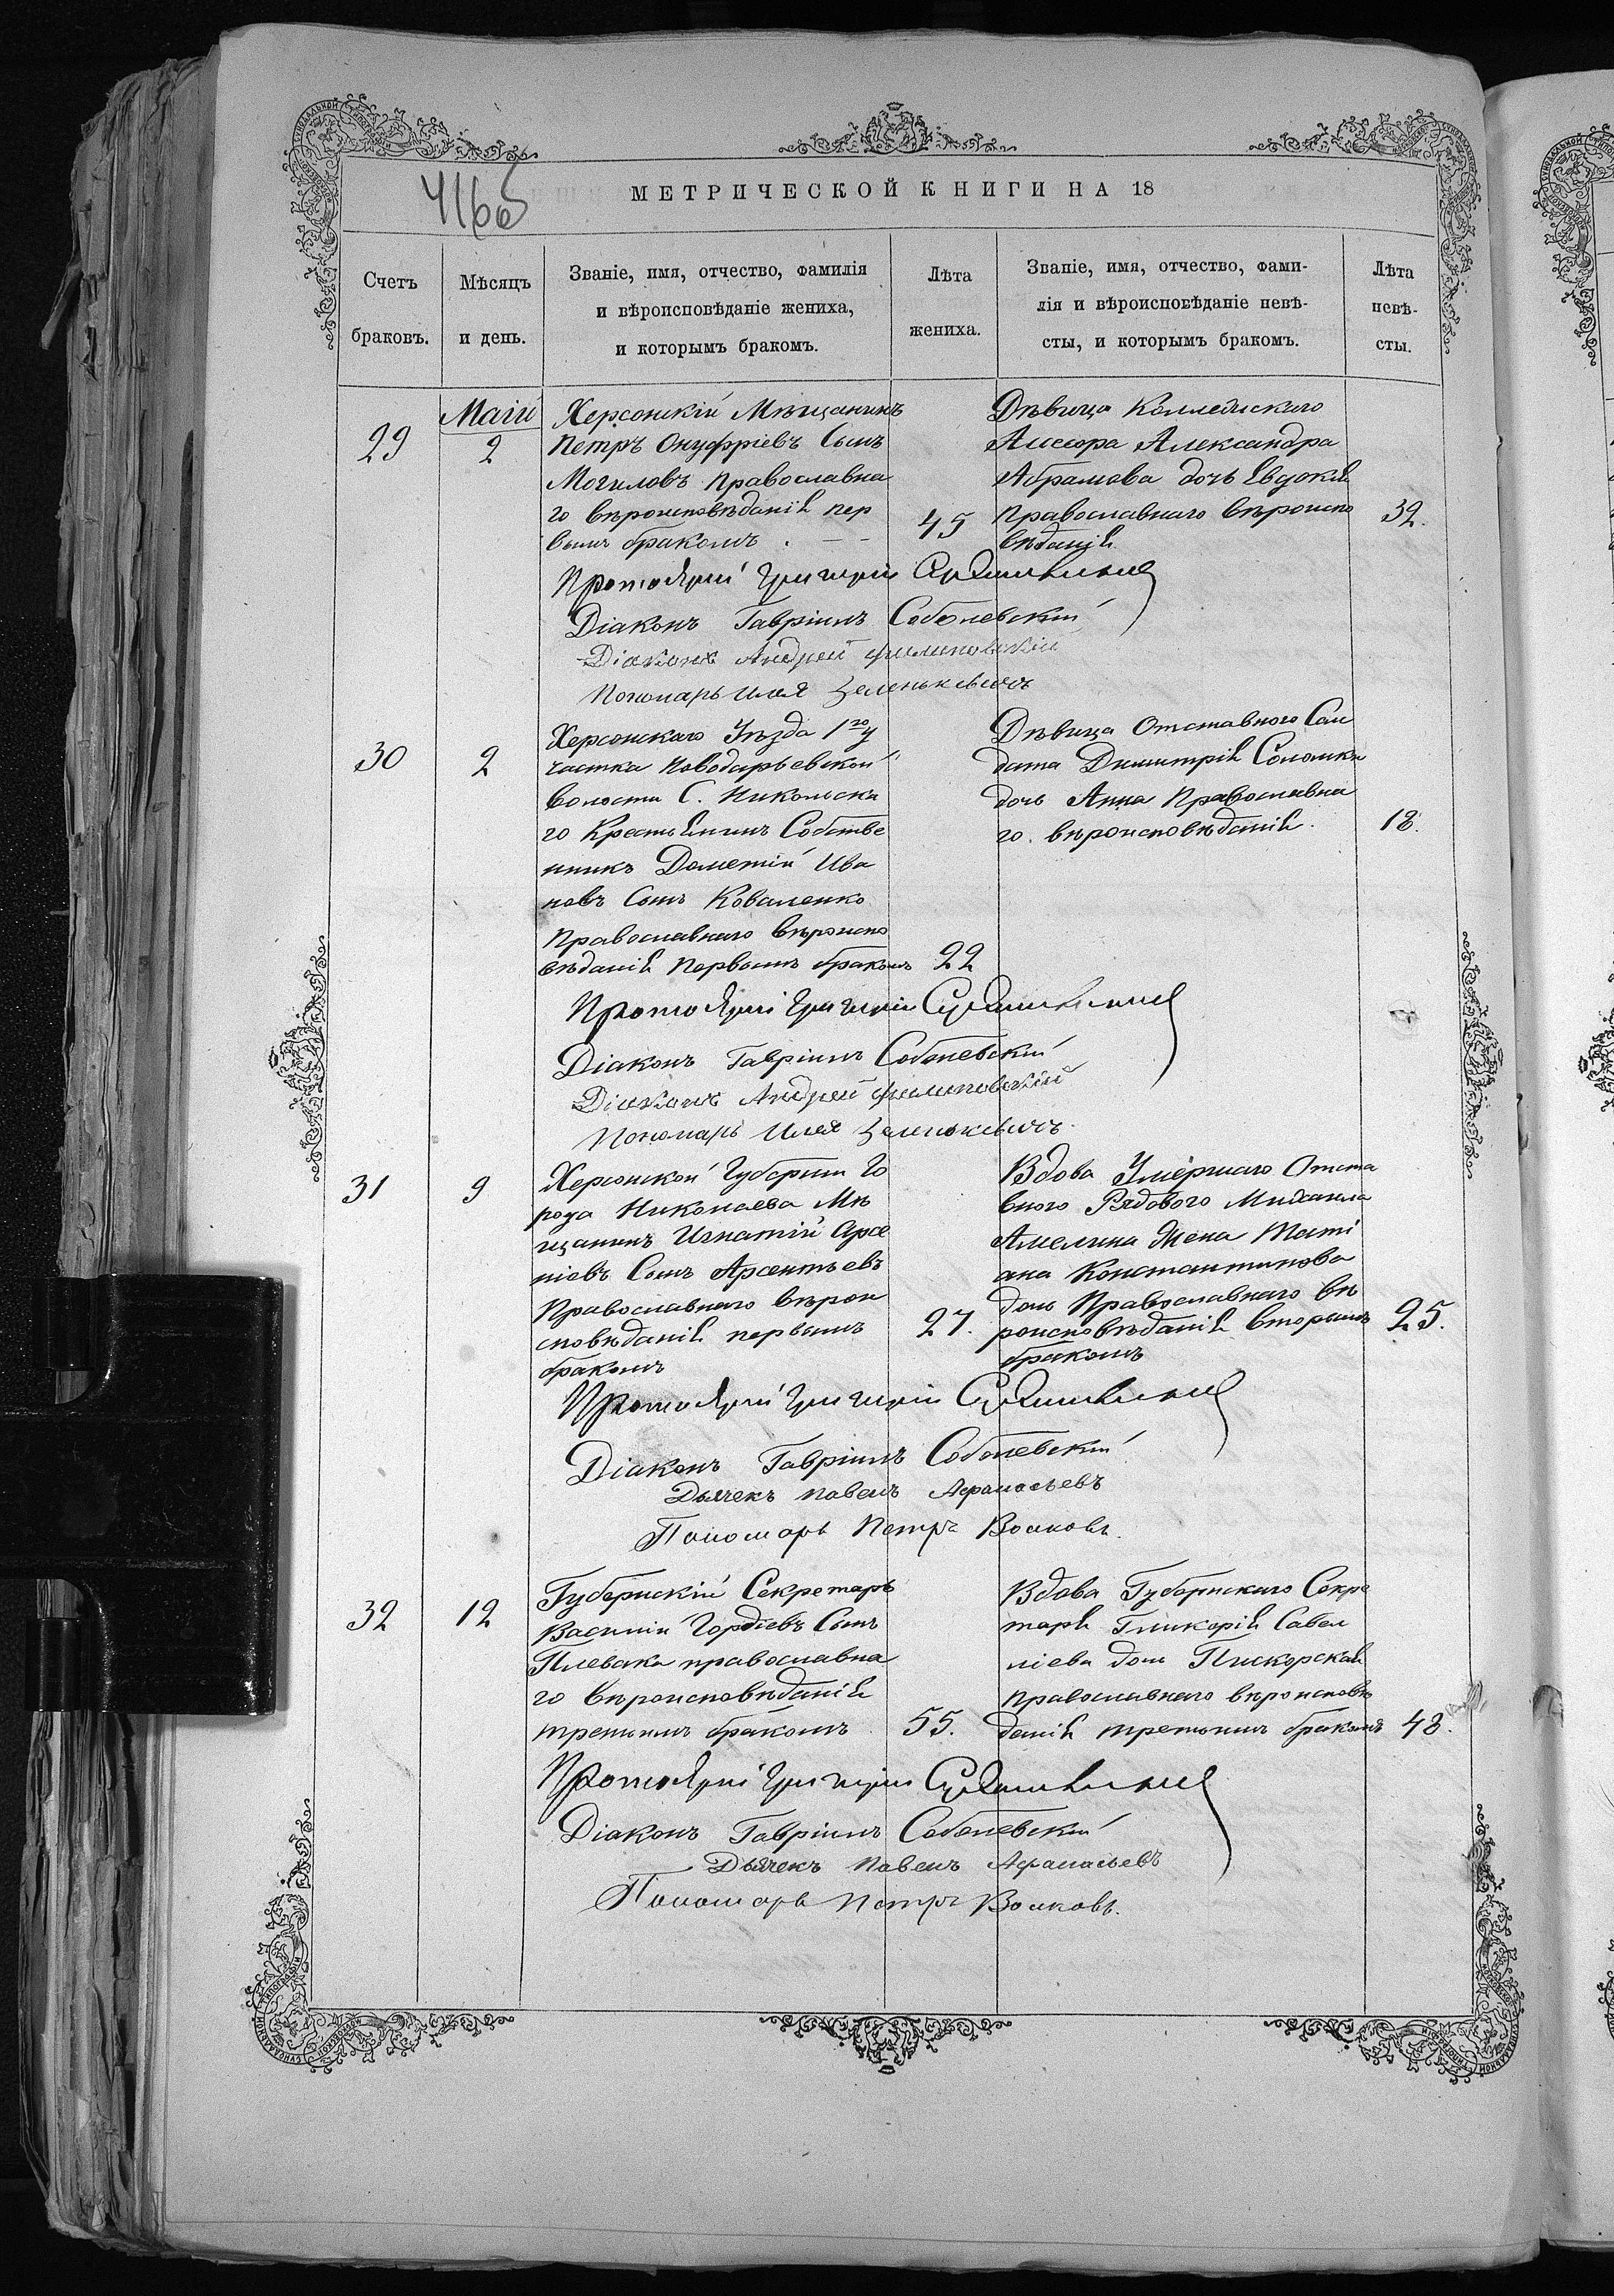 416об
МЕТРИЧЕСКОЙ КНИГИ НА 18
Счетъ браковъ.
Мѣсяцъ и день.
Званіе, имя, отчество, фамилія
и вѣроисповѣданіе жениха,
и которымъ бракомъ.
Лѣта жениха.
Званіе, имя, отчество, фами-
лія и вѣроисповѣданіе невѣ-
сты, и которымъ бракомъ.
Лѣта невѣ-
сты.
Маій
29
2
Херсонскій Мѣщанинъ
Петръ Онуфріевъ Сынъ
Могиловъ Православна
го вѣроисповѣданія пер
вымъ бракомъ . — —
45
Дѣвица Коллежскаго
Ассесора Александра
Абрамова дочь Евдокія
Православнаго вѣроиспо
вѣданія
32.
Протоіерей Григорій
Діаконъ Гавріилъ Соболевскій
Діаконъ Андрей Филиповскій
Пономарь Илья Зеленькевичъ
30
2
Херсонскаго Уѣзда 1го у
частка Новодарьевской
Волости С. Никольска
го Крестьянинъ Собстве
нникъ Дометій Ива
новъ Сынъ Коваленко
Православнаго вѣроиспо
вѣданія Первымъ бракомъ
22
Дѣвица Отставного Сол
дата Димитрія Соломки
дочь Анна Православна
го. вѣроисповѣданія.
18.
Протоіерей Григорій
Діаконъ Гавріилъ Соболевскій
Діаконъ Андрей Филиповскій
Пономарь Илья Зеленькевичъ
31
9
Херсонской Губерніи Го
рода Николаева Мѣ
щанинъ Игнатій Арсе
ніевъ Сынъ Арсентьевъ
Православнаго вѣрои
сповѣданія первымъ
бракомъ
27.
Вдова Умершаго Отста
вного Рядового Михаила
Амелина Жена Таті
ана Константинова
дочь Православнаго вѣ
роисповѣданія вторымъ
бракомъ
25.
Протоіерей Григорій
Діаконъ Гавріилъ Соболевскій
Дьячекъ Павелъ Афанасьевъ
Пономарь Петръ Волковъ.
32
12
Губернскій Секретарь
Василій Гордіевъ Сынъ
Плевака православна
го вѣроисповѣданія
третьимъ бракомъ
55.
Вдова Губернскаго Секре
таря Гликерія Савел
ліева дочь Пискорская
православнаго вѣроисповѣ
данія третьимъ бракомъ
48.
Протоіерей Григорій
Діаконъ Гавріилъ Соболевскій
Дьячекъ Павелъ Афанасьевъ
Пономарь Петръ Волковъ.